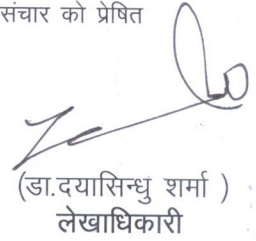 संचार को प्रेषित
(डा.दयासिन्धु शर्मा )
लेखाधिकारी